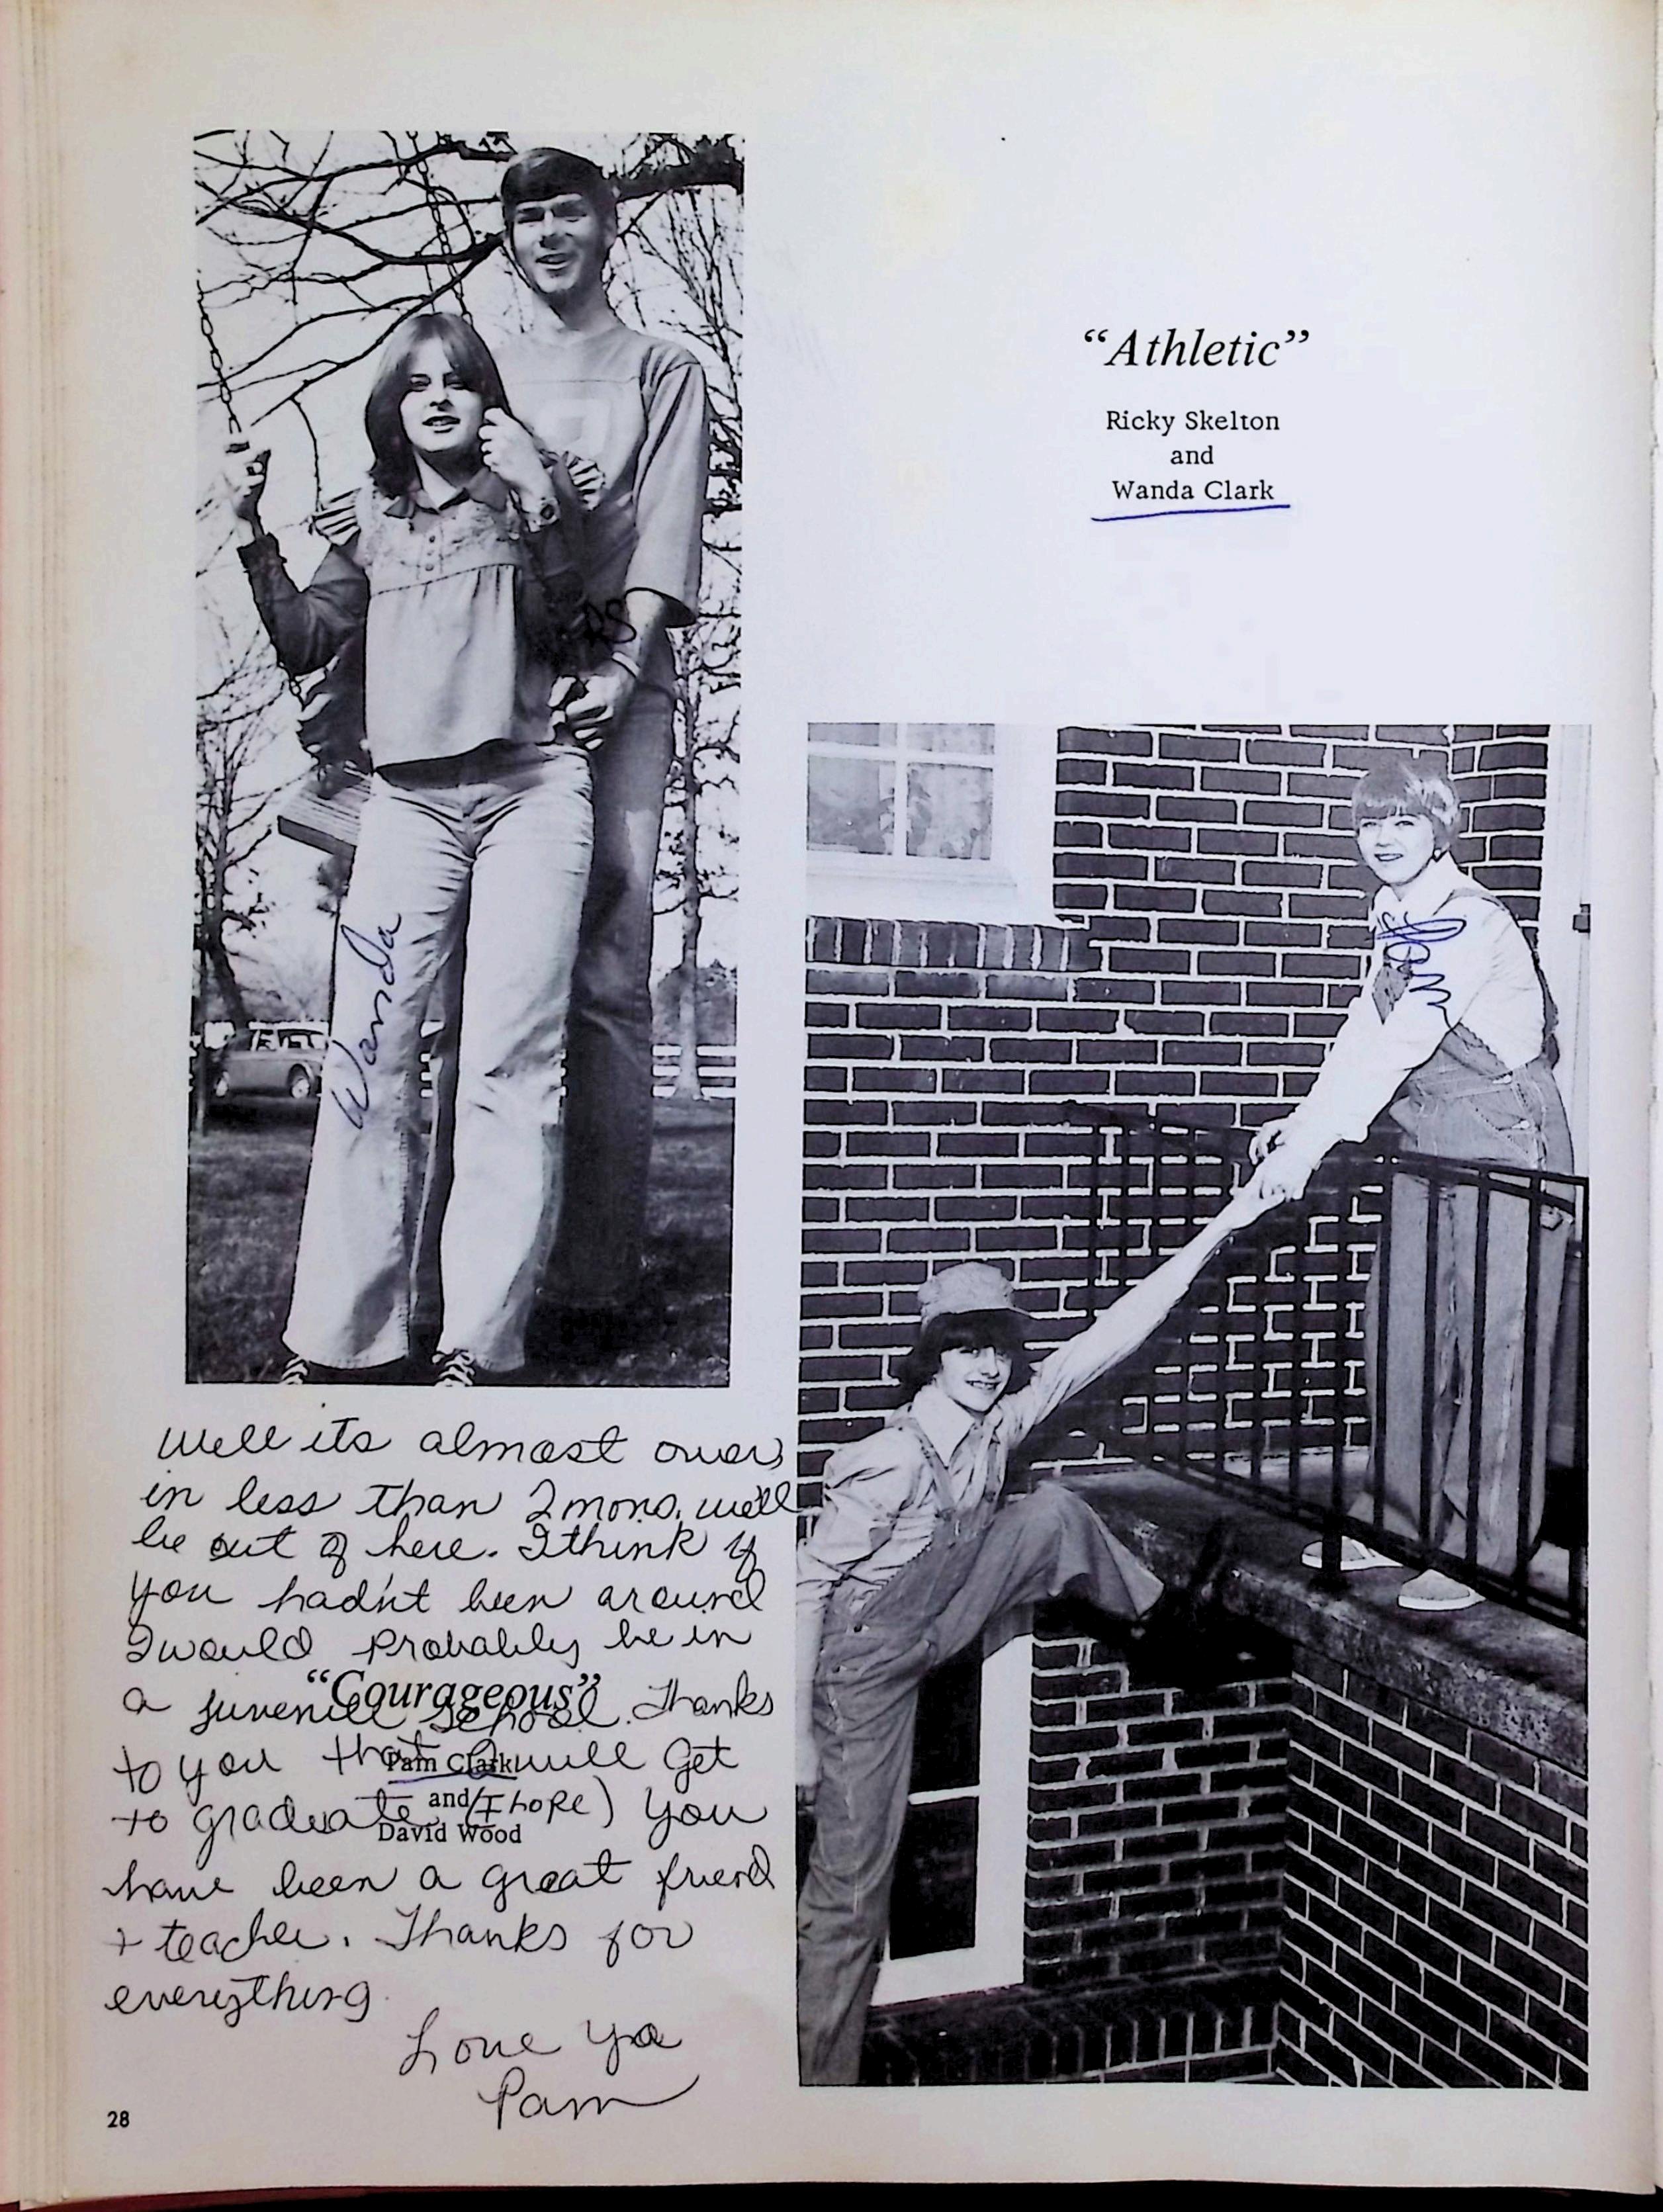 “Athletic”
Ricky Skelton
and
Wanda Clark
RS
Wanda
Pam
well its almost over,
in less than 2 mons. we'll
be out of here. I think if
you hadn't been around
I would probably be in
a juvenile school. Thanks
to you that I will get
to graduate (I hope) you
have been a great friend
+ teacher. Thanks for
everything.
Love ya
Pam
“Courageous”
Pam Clark
and
David Wood
28